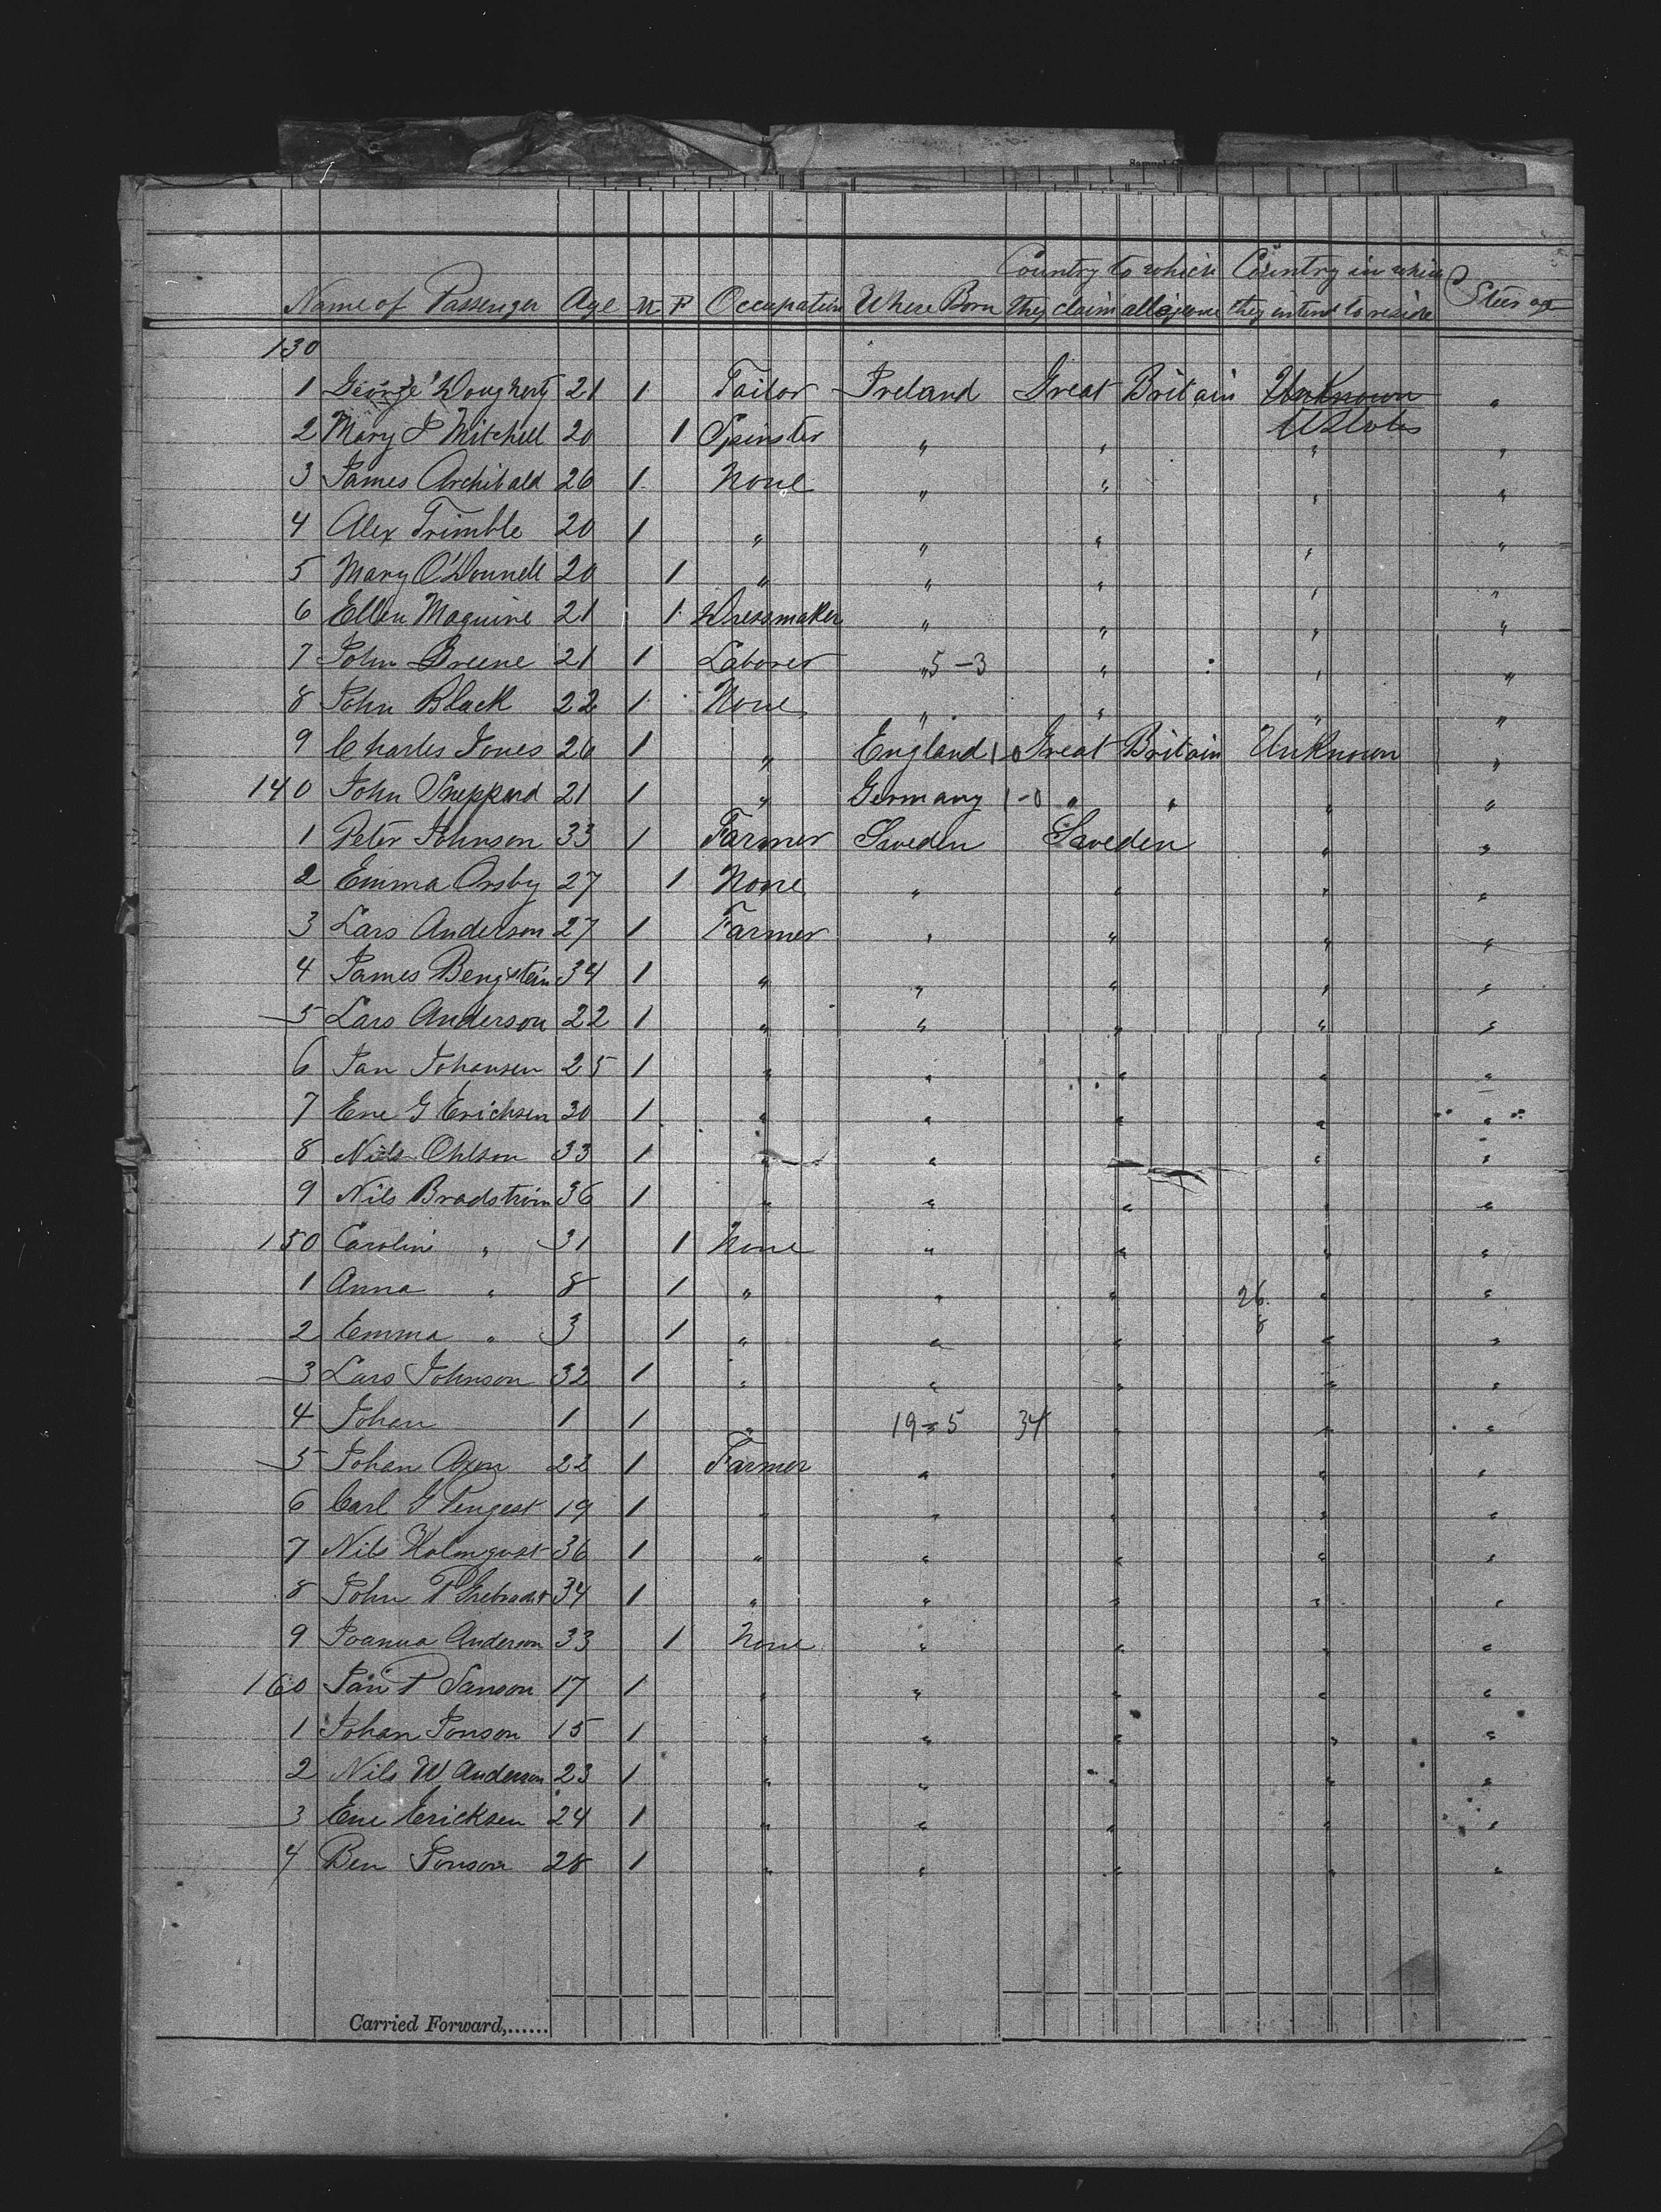 Samuel
Country to which Country in which
Name of Passenger Age M F Occupation Where Born they claim allegiance they intend to reside Steerage
130
1 George Dougherty 21 1 Tailor Ireland Great Britain Unknown "
U States
2 Mary J Mitchell 20 1 Spinster " " " "
3 James Archibald 26 1 None " " " "
4 Alex Trimble 20 1 " " " " "
5 Mary O'Donnell 20 1 " " " " "
6 Ellen Maguire 21 1 Dressmaker " " " "
7 John Greene 21 1 Laborer " 5-3 " " "
8 John Black 22 1 None " " " "
9 Charles Jones 26 1 " England 1-0 Great Britain Unknown "
140 John Sheppard 21 1 " Germany 1-0 " " " "
1 Peter Johnson 33 1 Farmer Sweden Sweden " "
2 Emma Orsby 27 1 None " " " "
3 Lars Anderson 27 1 Farmer " " " "
4 James Bengstein 34 1 " " " " "
5 Lars Anderson 22 1 " " " " "
6 Jan Johansen 25 1 " " " " "
7 Ene G Erichsen 30 1 " " " " "
8 Niels Ohlson 33 1 " " " " "
9 Nils Bradstrom 36 1 " " " " "
150 Caroline " 31 1 None " " " "
1 Anna " 8 1 " " " 26 " "
2 Emma " 3 1 " " " 8 " "
3 Lars Johnson 32 1 " " " " "
4 Johan 1 1 " 19=5 34 " " "
5 Johan Axen 22 1 Farmer " " " "
6 Carl G 19 1 " " " " "
7 Nils Holmqvist 36 1 " " " " "
8 John P 34 1 " " " " "
9 Joanna Anderson 33 1 None " " " "
160 Jan P Sanson 17 1 " " " " "
1 Johan Jonson 15 1 " " " " "
2 Nils W Anderson 23 1 " " " " "
3 Ene Ericksen 24 1 " " " " "
4 Ben Jonson 28 1 " " " " "
Carried Forward,......